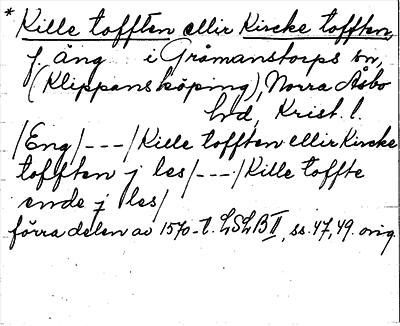 * Kille tofften ellir Kircke tofften,
f. äng i Gråmanstorps sn,
(Klippans köping), Norra Åsbo
hd, Krist. l.
/Eng/---/Kille tofften ellir Kircke
tofften j les/---/Kille toffte
ende j les/
förra delen av 1570-t. LSLB II, ss. 47, 49. orig.